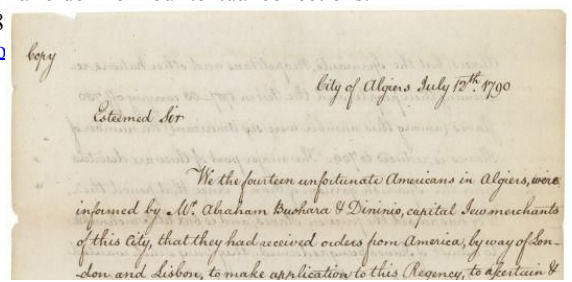 Copy
City of Algiers July 12th. 1790
Esteemed Sir
We the fourteen unfortunate Americans in Algiers, were
informed by Mr. Abraham Bushara & Dininio, capital Jew merchants
of this City, that they had received orders from America, by way of Lon-
don and Lisbon, to make application to this Regency, to ascertain &